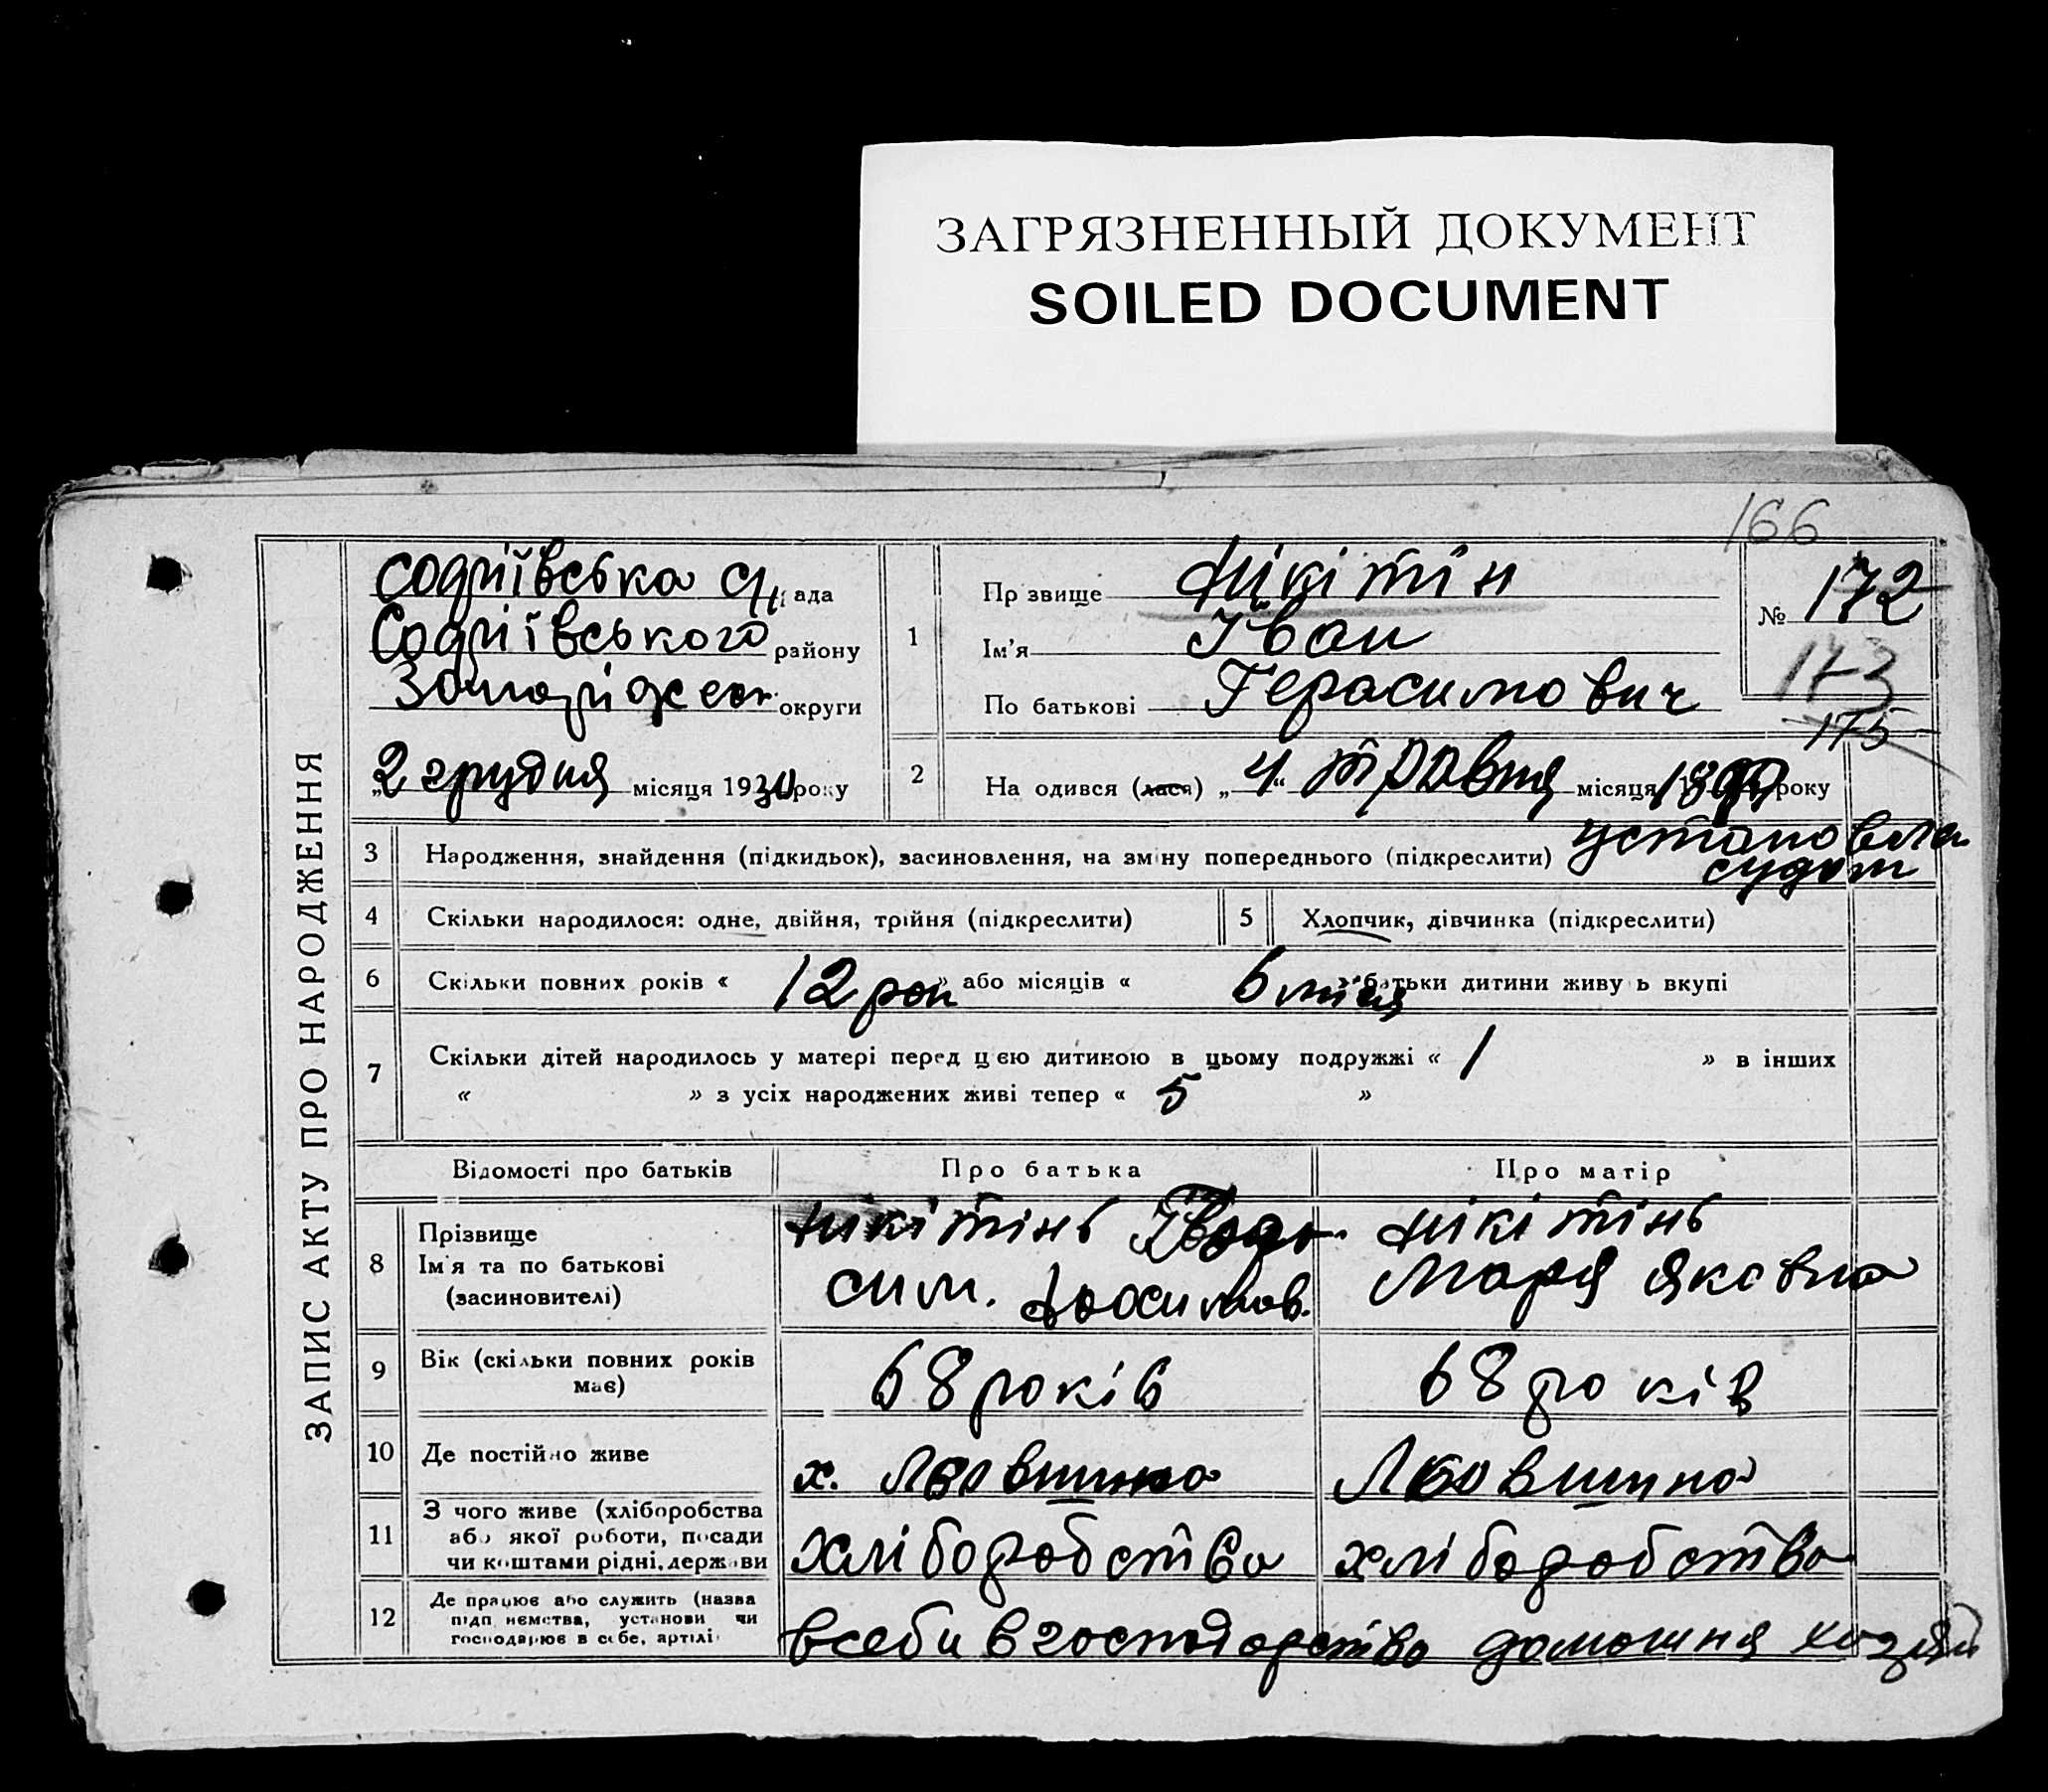 ЗАГРЯЗНЕННЫЙ ДОКУМЕНТ
SOILED DOCUMENT
166
ЗАПИС АКТУ ПРО НАРОДЖЕННЯ
Софиївська рада
Софиївського району
округи
„2 грудня місяця 1930 року
1
Прізвище Нікітін
Ім'я Іван
По батькові Герасимович
№ 172
173
175
2 На одився (лася) „4“ травня місяця року
3 Народження, знайдення (підкидьок), засиновлення, на зміну попереднього (підкреслити) установлен
судом
4 Скільки народилося: одне, двійня, трійня (підкреслити)
5 Хлопчик, дівчинка (підкреслити)
6 Скільки повних років « 12 рок » або місяців « 6 місяц » батьки дитини живу ь вкупі
7 Скільки дітей народилось у матері перед цією дитиною в цьому подружжі « 1 » в інших
« » з усіх народжених живі тепер « 5 »
Відомості про батьків Про батька Про матір
8 Прізвище
Ім'я та по батькові
(засиновителі)
Нікітінь
сим.
Нікітінь
Марія Яковна
9 Вік (скільки повних років
має)
68 років 68 років
10 Де постійно живе х. Львовшина Львовшина
11 З чого живе (хліборобства
або якої роботи, посади
чи коштами рідні, держави
хліборобство хліборобство
12 Де працює або служить (назва
підп иємства, установи чи
господарює в себе, артілі
всеби в господарство домошня